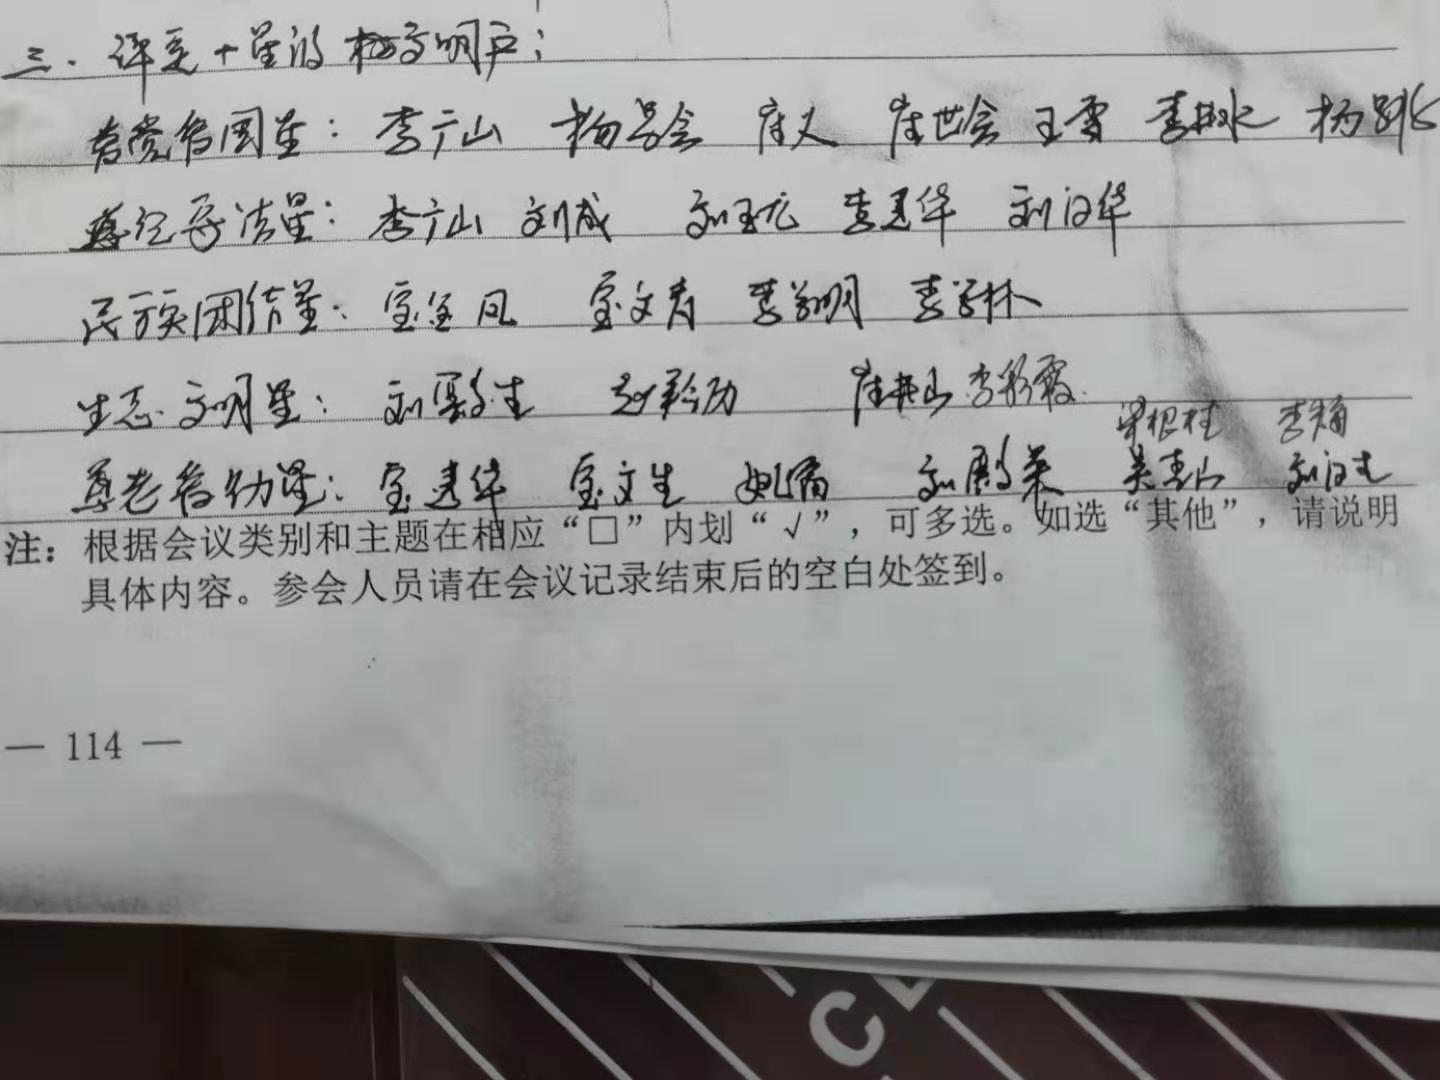 三、评定十星的文明户：
爱党爱国星：李广山 杨 会 崔义 崔世会 王雷 李 杨
遵纪守法星：李广山 刘成 刘玉龙 李建华 刘汉华
民族团结星：宝金凤 宝文青 李学明 李学林
生态文明星：刘 生 赵 崔艳山 李彩霞
梁根柱 李娟
尊老爱幼星：宝建华 宝文生 姚 刘 荣 吴青山 刘汉生
注：根据会议类别和主题在相应“□”内划“√”，可多选。如选“其他”，请说明
具体内容。参会人员请在会议记录结束后的空白处签到。
— 114 —